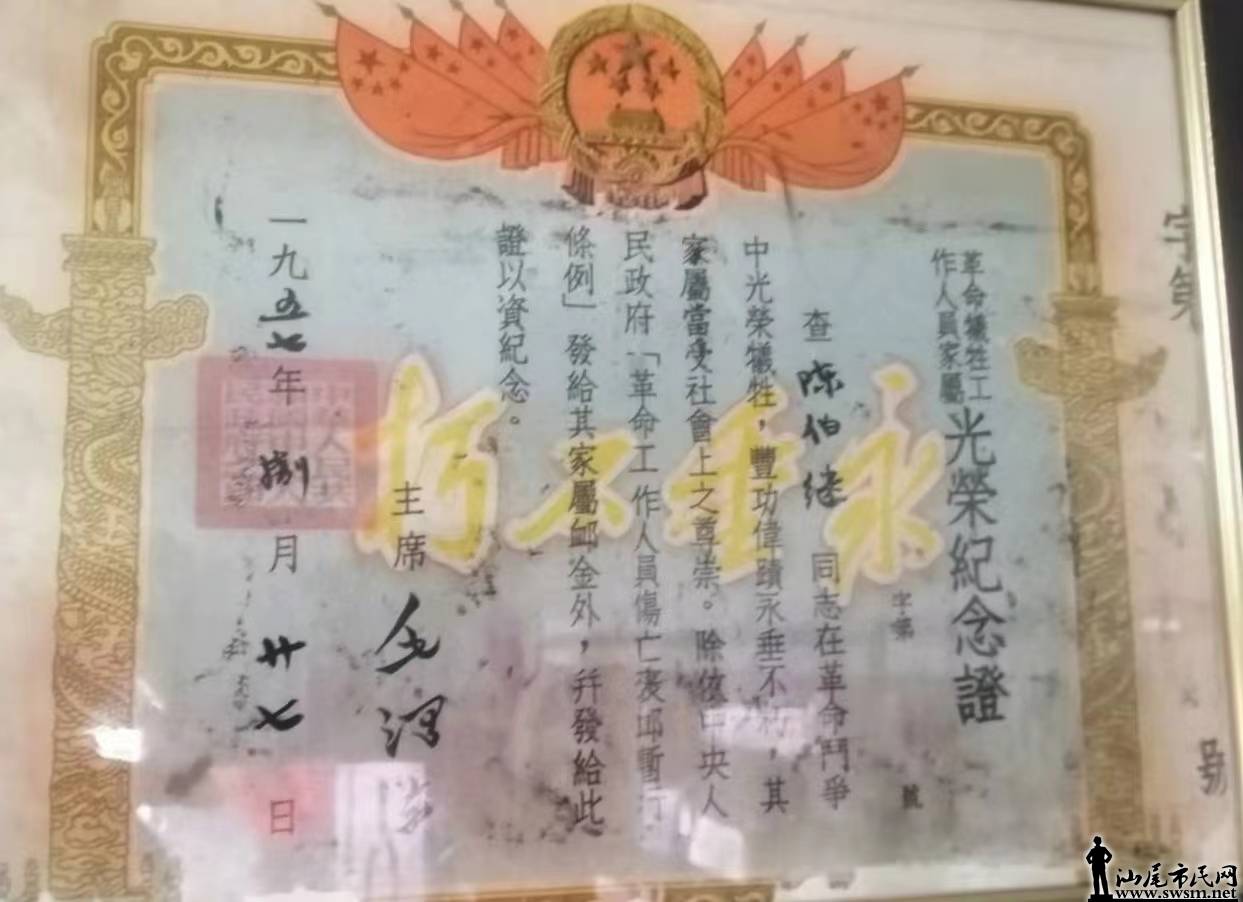 革命犧牲工
作人員家屬
光榮紀念證
字第
號
查陳伯继同志在革命鬥爭
中光榮犧牲，豐功偉蹟永垂不朽，其
家屬當受社會上之尊崇。除依中央人
民政府「革命工作人員傷亡褒卹暫行
條例」發給其家屬卹金外，幷發給此
證以資紀念。
主席毛澤东
一九五七年捌月廿七日
永垂不朽
字第
號
汕尾市民网
www.swsm.net